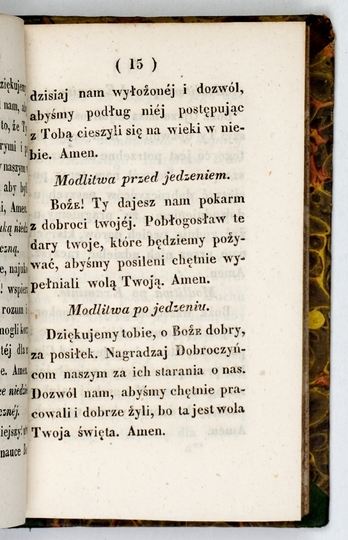 ( 15 )
dzisiaj nam wyłożonéj i dozwól,
abyśmy podług niéj postępując
z Tobą cieszyli się na wieki w nie-
bie. Amen.
Modlitwa przed jedzeniem.
BOŻE! Ty dajesz nam pokarm
z dobroci twojéj. Pobłogosław te
dary twoje, które będziemy poży-
wać, abyśmy posileni chętnie wy-
pełniali wolą Twoją. Amen.
Modlitwa po jedzeniu.
Dziękujemy tobie, o BOŻE dobry,
za posiłek. Nagradzaj Dobroczyń-
com naszym za ich starania o nas.
Dozwól nam, abyśmy chętnie pra-
cowali i dobrze żyli, bo ta jest wola
Twoja święta. Amen.